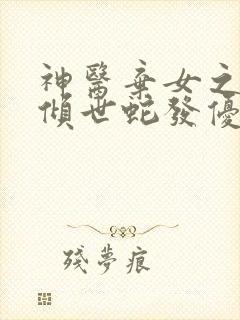 神醫棄女之
傾世蛇發優
殘夢痕